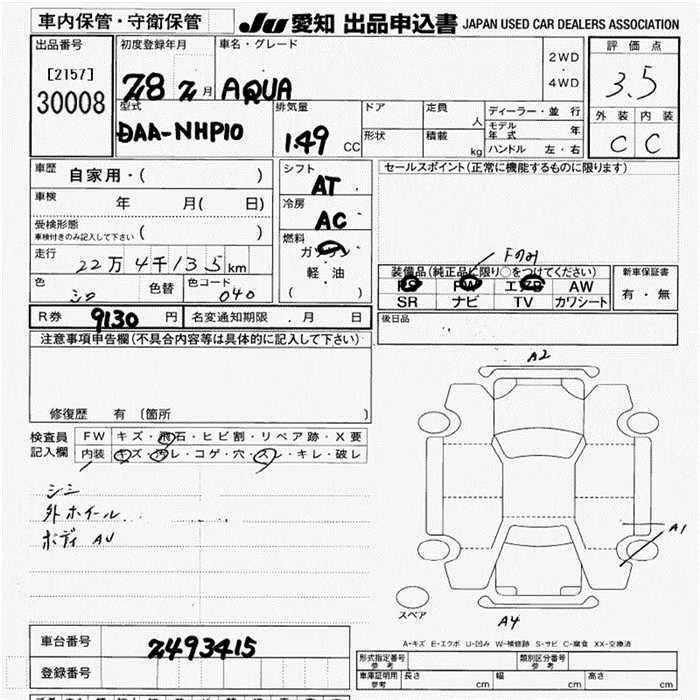 車内保管・守衛保管 JU 愛知 出品申込書 JAPAN USED CAR DEALERS ASSOCIATION
出品番号 初度登録年月 車名・グレード 2WD 評価点
[2157] 28 2月 AQUA ・ 4WD 3.5
30008 型式 排気量 ドア 定員 人 ディーラー・並行 外装 内装
DAA-NHP10 1.49 CC 形状 積載 kg モデル年式 年 C C
ハンドル 左・右
車歴 自家用・( ) シフト AT セールスポイント(正常に機能するものに限ります)
車検 年 月( 日) 冷房 AC
受検形態 ( )
車検付きのみ記入して下さい
燃料 ガソリン Fのみ
走行 22万4千135km 軽油 装備品(純正品に限り○をつけてください) 新車保証書
色 シロ 色替 色コード 040 ( ) PS PW エアB AW 有・無
SR ナビ TV カワシート
R券 9130 円 名変通知期限 . 月 日 後日品
注意事項申告欄(不具合内容等は具体的に記入して下さい)
A2
修復歴 有 〔箇所 〕
検査員 FW キズ・飛石・ヒビ割・リペア跡・X要
記入欄 内装 キズ・汚レ・コゲ・穴・スレ・キレ・破レ
シミ
外ホイール
ボディ AU
A1
スペア
A4
A-キズ E-エクボ U-凹み W-補修跡 S-サビ C-腐食 XX-交換済
車台番号 2493415
登録番号
形式指定番号 参考 類別区分番号 参考
車庫証明用 参考 長さ cm 幅 cm 高さ cm